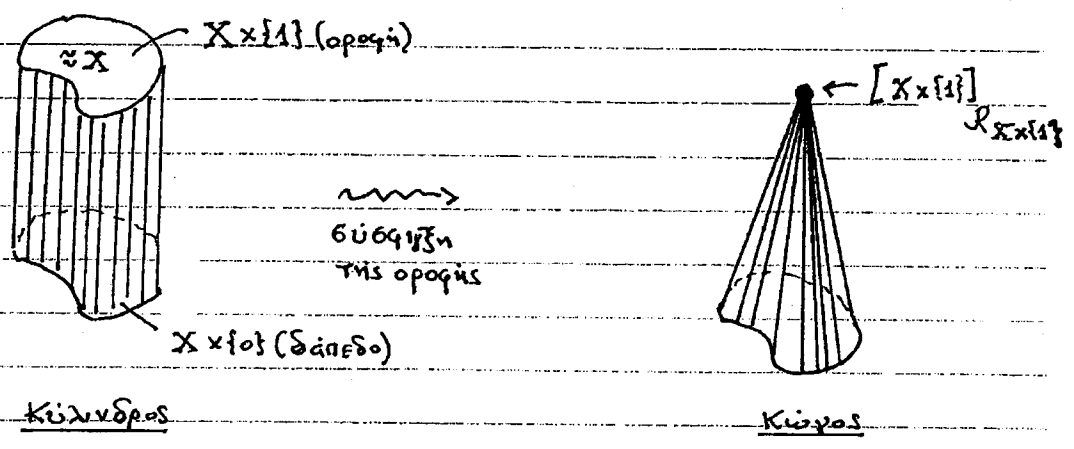 X×{1} (οροφή)
≈X
← [X×{1}]
R_{X×{1}}
σύσφιξη
της οροφής
X×{0} (δάπεδο)
Κύλινδρος
Κώνος